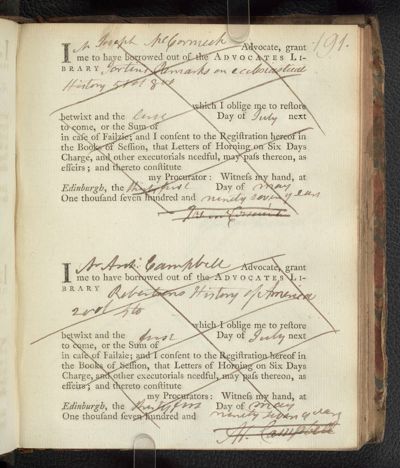 191.
I Mr Joseph McCormick Advocate, grant
me to have borrowed out of the ADVOCATES LI-
BRARY Jortins Remarks on ecclesiastical
History 5 vol 8vo
which I oblige me to restore
betwixt and the first Day of July next
to come, or the Sum of
in case of Failzie; and I consent to the Registration hereof in
the Books of Session, that Letters of Horning on Six Days
Charge, and other executorials needful, may pass thereon, as
effeirs; and thereto constitute
my Procurator: Witness my hand, at
Edinburgh, the thirty first Day of May
One thousand seven hundred and ninety seven years
I Mr Arch: Campbell Advocate, grant
me to have borrowed out of the ADVOCATES LI-
BRARY Robertsons History of America
2 vol 4to
which I oblige me to restore
betwixt and the first Day of July next
to come, or the Sum of
in case of Failzie; and I consent to the Registration hereof in
the Books of Session, that Letters of Horning on Six Days
Charge, and other executorials needful, may pass thereon, as
effeirs; and thereto constitute
my Procurator: Witness my hand, at
Edinburgh, the thirty first Day of May
One thousand seven hundred and ninety seven years
A. Campbell